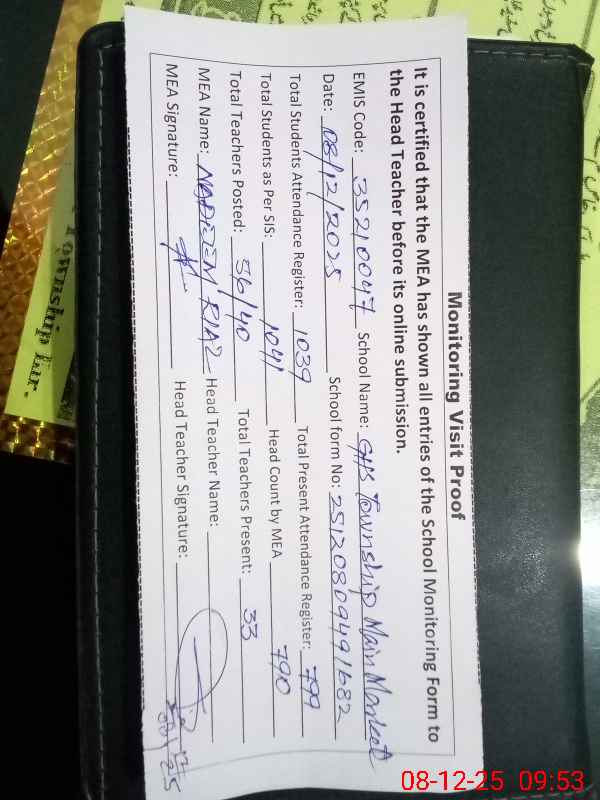 Monitoring Visit Proof
It is certified that the MEA has shown all entries of the School Monitoring Form to
the Head Teacher before its online submission.
EMIS Code: 35210047 School Name: GHS Township Main Market
Date: 08/12/2025 School form No: 25120809491682
Total Students Attendance Register: 1039 Total Present Attendance Register: 799
Total Students as Per SIS: 1041 Head Count by MEA 790
Total Teachers Posted: 36/40 Total Teachers Present: 33
MEA Name: NADEEM RIAZ Head Teacher Name:
MEA Signature: Head Teacher Signature:
Township Lhr.
08-12-25 09:53